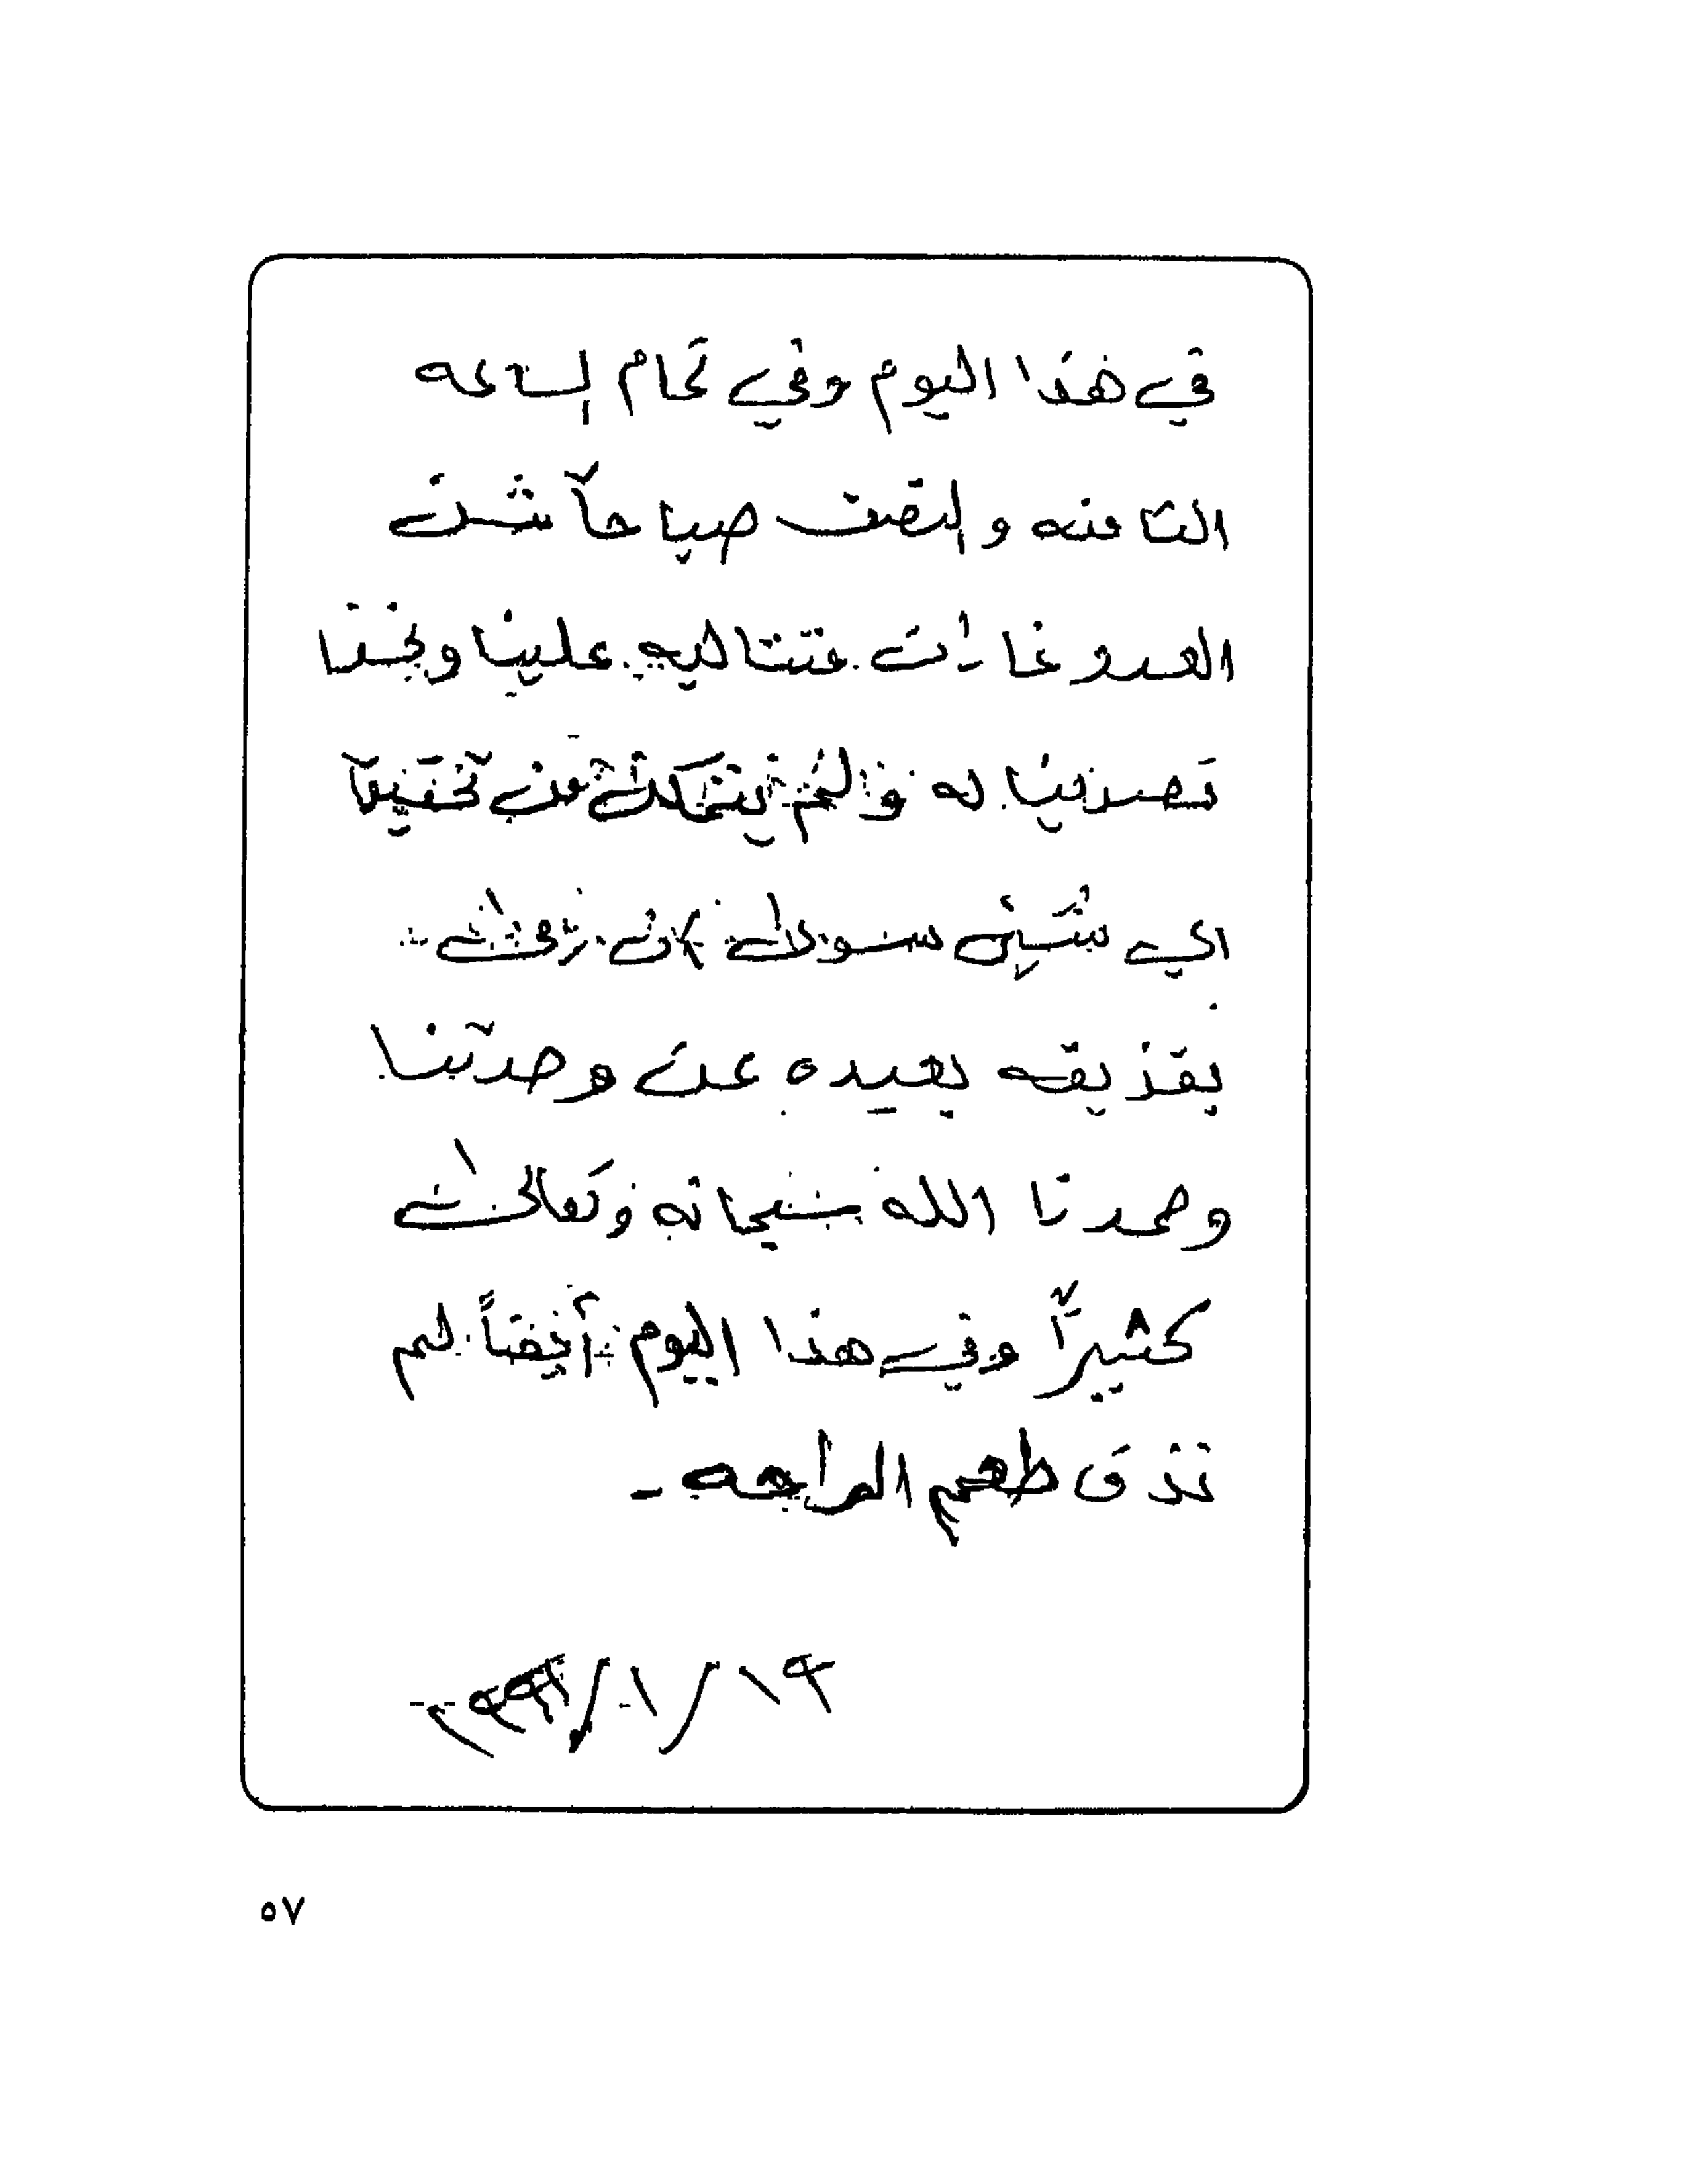 في هذا اليوم وفي تمام الساعه
الثامنه والنصف صباحاً شن
العدو غارات متتاليه علينا ونحننا
تصدينا له ولم يتمكن من تحقيق
اي شيئ سوى ان
بقذيفه بعيده عن وحدتنا
وحمدنا الله سبحانه وتعالى
كثيراً وفي هذا اليوم أيضاً لم
نذق طعم الراحه -
١٩/١/١٩٩١م
٥٧